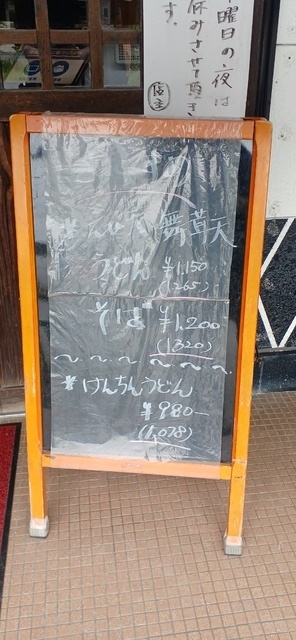 曜日の夜は
休みさせて頂き
す。
店主
舞茸天
うどん ¥1,150
(1265)
そば ¥1,200
(1320)
〜〜〜〜〜〜
*けんちんうどん
¥980-
(1,078)